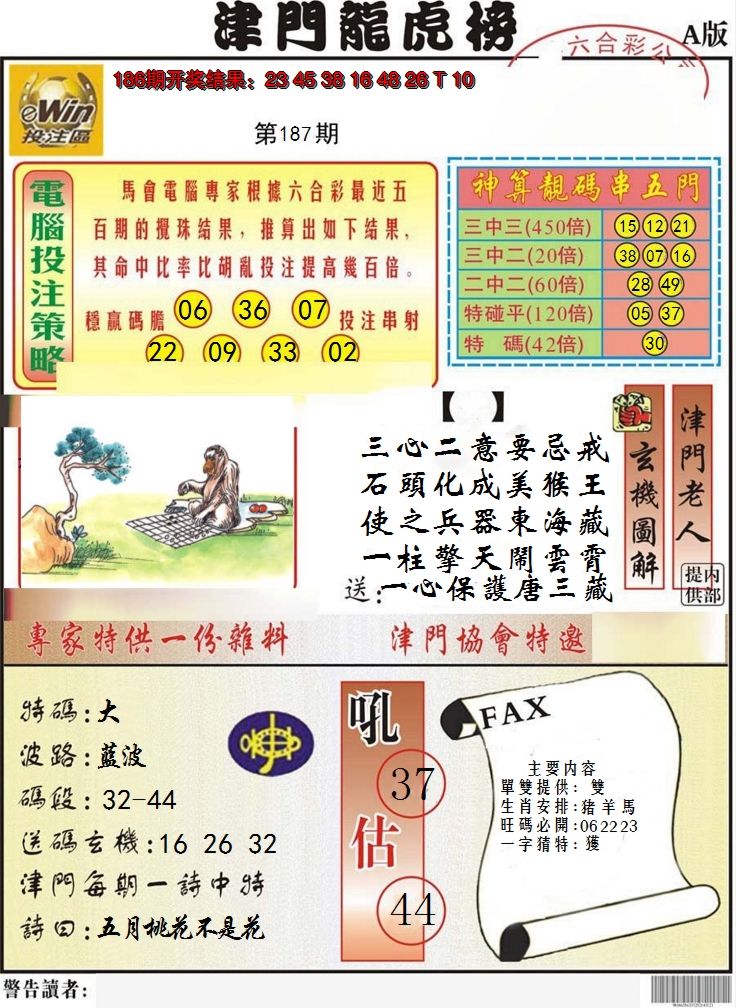 津門龍虎榜
A版
六合彩公
186期开奖结果：23 45 38 16 48 26 T 10
eWin
投注區
第187期
電腦投注策略
馬會電腦專家根據六合彩最近五
百期的攪珠结果，推算出如下结果，
其命中比率比胡亂投注提高幾百倍。
穩贏碼膽 06 36 07 投注串射
22 09 33 02
神算靚碼串五門
三中三(450倍) 15 12 21
三中二(20倍) 38 07 16
二中二(60倍) 28 49
特碰平(120倍) 05 37
特 碼(42倍) 30
【 】
三心二意要忌戒
石頭化成美猴王
使之兵器東海藏
一柱擎天鬧雲霄
送:一心保護唐三藏
玄機圖解
津門老人
内部提供
專家特供一份雜料
津門協會特邀
特碼:大
波路:藍波
碼段:32-44
送碼玄機:16 26 32
津門每期一詩中特
詩曰:五月桃花不是花
吼
37
估
44
FAX
主要内容
單雙提供: 雙
生肖安排:猪羊馬
旺碼必開:062223
一字猜特:獲
警告讀者: